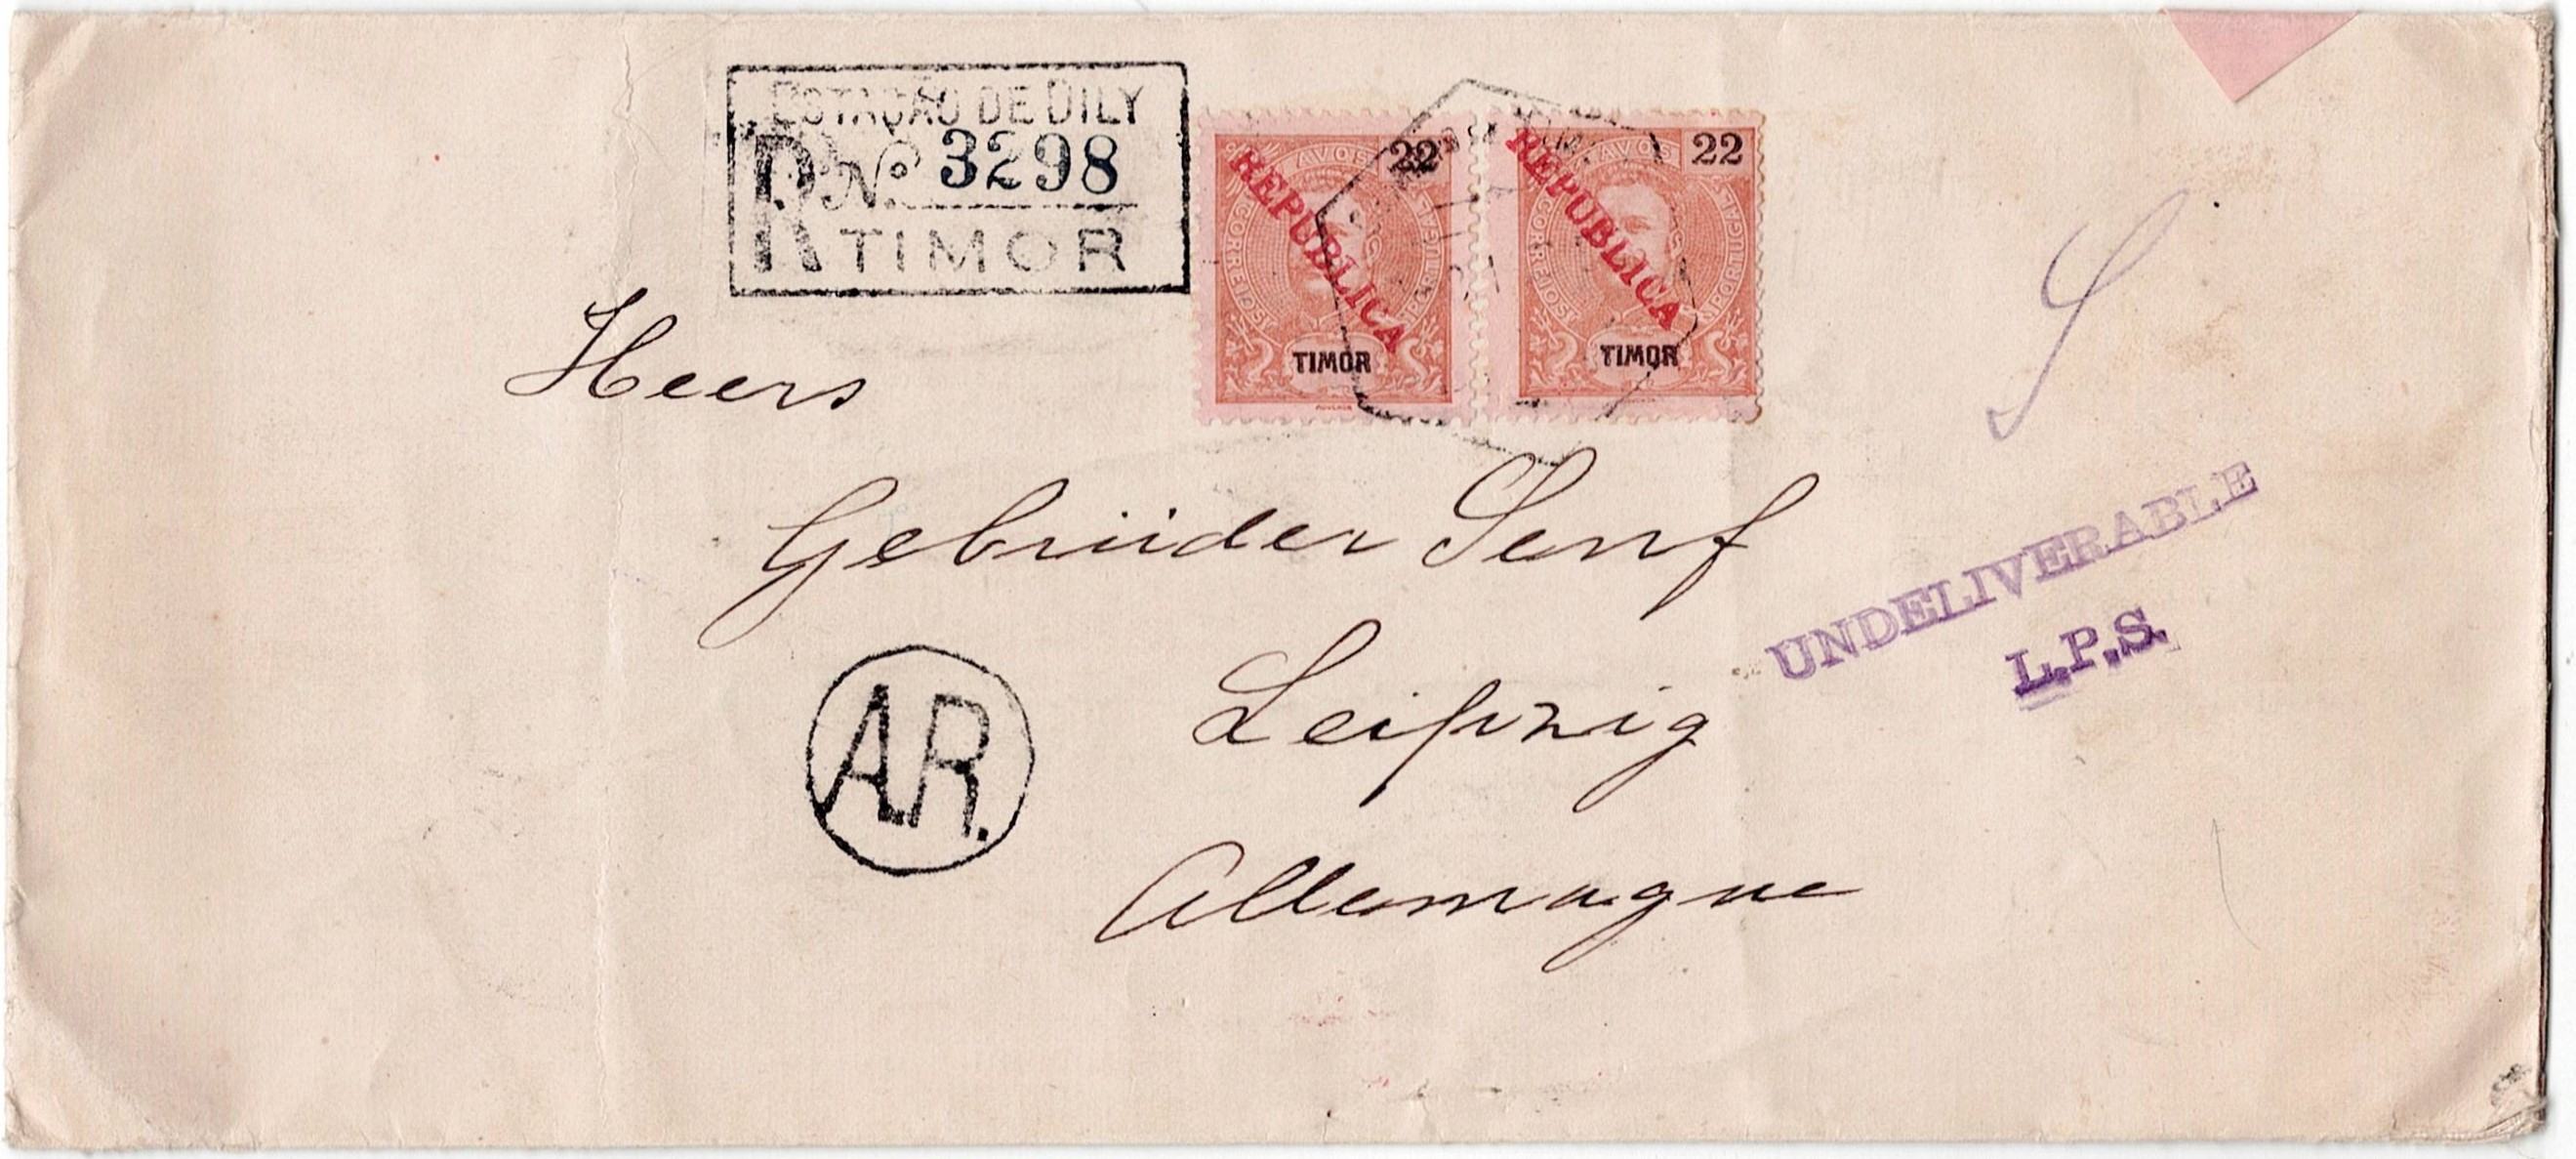 ESTAÇÃO DE DILY
R N.º 3298
TIMOR
AVOS 22
REPUBLICA
CORREIOS
PORTUGAL
TIMOR
MOUCHON
AVOS 22
REPUBLICA
CORREIOS
PORTUGAL
TIMOR
Heers
Gebrüder Senf
Leipzig
Allemagne
A.R.
UNDELIVERABLE
L.P.S.